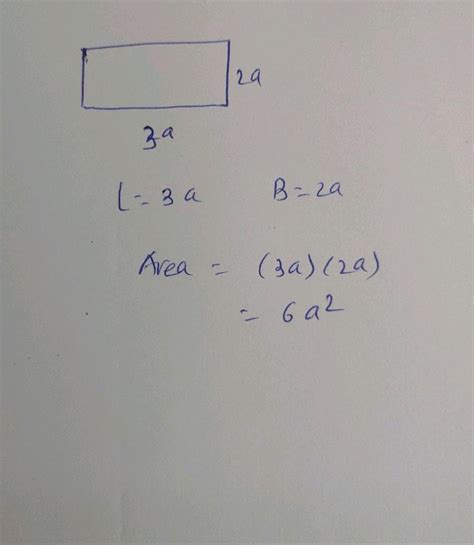 2a
3a
L = 3a B = 2a
Area = (3a)(2a)
= 6a²